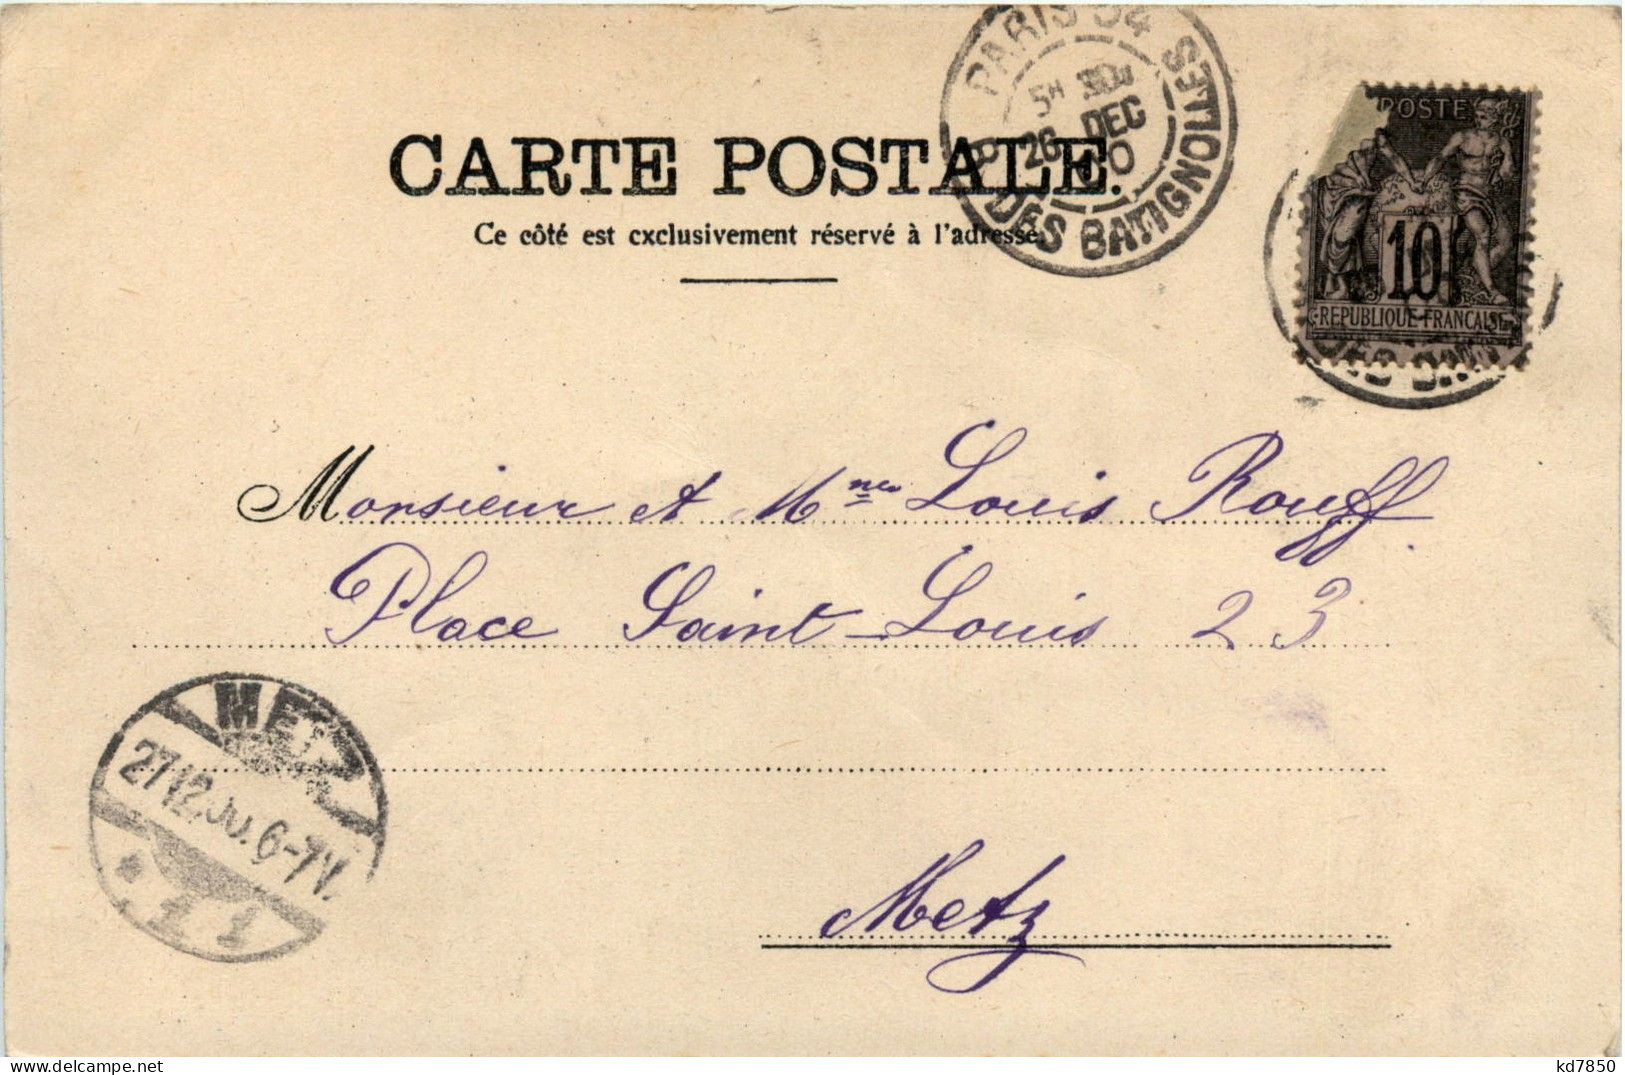 PARIS 54
5H
26 DEC
00
B DES BATIGNOLLES
POSTE
10
REPUBLIQUE FRANCAISE
CARTE POSTALE.
Ce côté est exclusivement réservé à l'adresse.
Monsieur et Mme Louis Rouff
Place Saint-Louis 23
Metz
METZ
27.12.00.6-7V.
* 1 1
kd7850